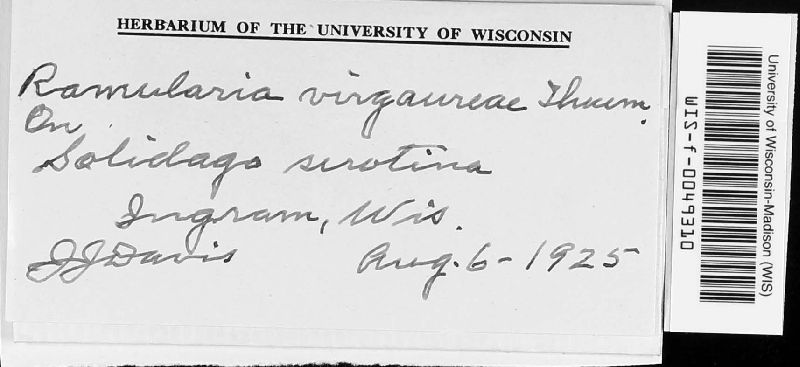 HERBARIUM OF THE UNIVERSITY OF WISCONSIN
Ramularia virgaureae Thuem.
On
Solidago serotina
Ingram, Wis.
JJDavis Aug. 6 - 1925
University of Wisconsin-Madison (WIS)
WIS-f-0049310